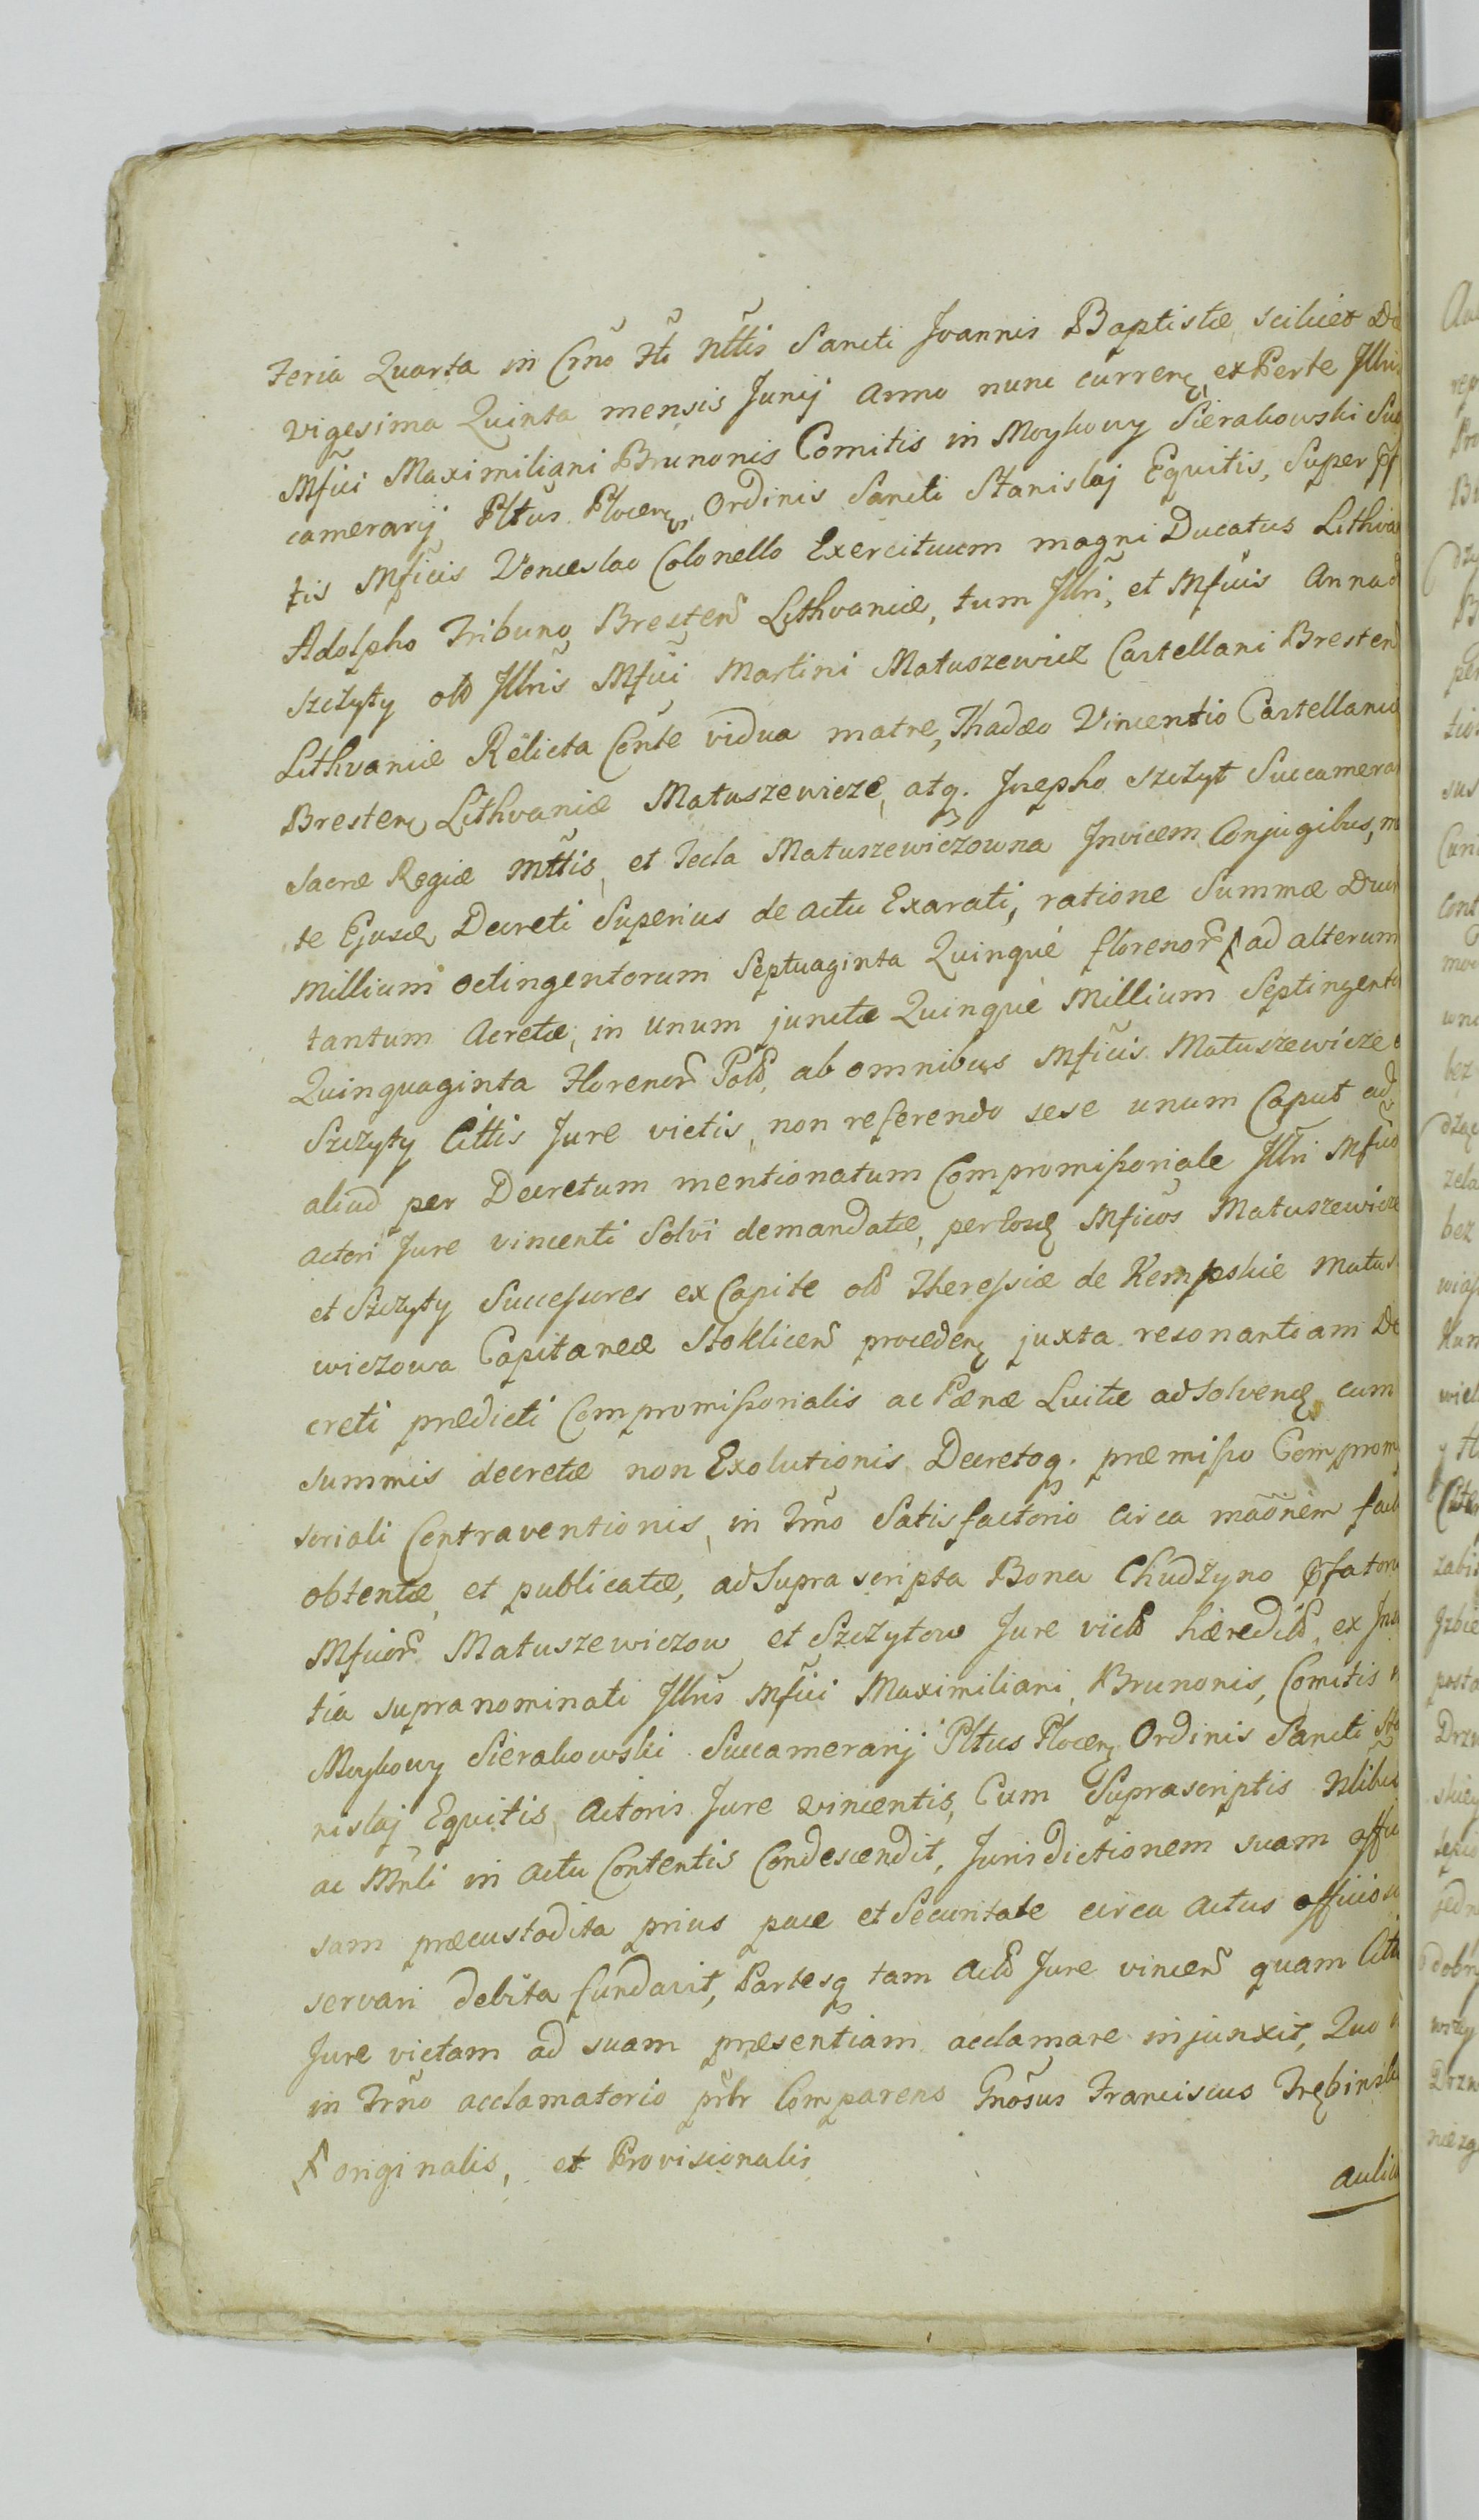 Feria Quarta in Crño Ftõ Nttis Sancti Joannis Baptistæ scilicet Di
vigesima Quinta mensis Junij Anno nunc curren, ex Parte Illris
Mfici Maximiliani Brunonis Comitis in Moykowy Sierakowski Suc
camerarij Pltus Plocen, Ordinis Sancti Stanislaj Equitis, Super
tis Mficis Venceslao Colonello Exercituum magni Ducatus Lithva
Adolpho Tribuno Bresten Lithvaniæ, tum Illri, et Mficis Anna d
Szczyty olð Illris Mfici Martini Matuszewicz Castellani Bresten
Lithvaniæ Relicta Cente vidua matre, Thadæo Vincentio Castellanid
Bresten Lithvaniæ Matuszewicze, atq. Josepho Szczyt Succamerar
Sacræ Regiæ Mttis, et Tecla Matuszewiczowna Invicem Conjugibus,
te Ejusd Decreti Superius de actu Exarati, ratione Summæ Duor
Millium octingentorum Septuaginta Quinque florenor ad alterum
tantum Acretæ, in unum junctæ Quinque Millium Septingento
Quinquaginta Florenor Pol, ab omnibus Mficis Matuszewicze
Szczyty Cittis Jure victis, non referendo sese unum Caput ad
aliud per Decretum mentionatum Compromissoriale Illri Mfico
Actori Jure vincenti Solvi demandatæ, per eosd Mficos Matuszewicze
et Szczyty Successores ex Capite olð Theressiæ de Kempskie Matus
wiczowa Capitaneæ Stoklicen proceden juxta resonantiam De
creti prædicti Compromissorialis ac Pœnæ Luitæ adsolven cum
summis decretæ non Exolutionis Decretoq. præmisso Compromis
soriali Contraventionis, in Trño Satisfactorio circa mãonem fact
obtentæ, et publicatæ, ad Supra scripta Bona Chudżyno Præfator
Mficor Matuszewiczow et Szczytow Jure vict hæredit, ex Ins
tia supranominati Illris Mfici Maximiliani, Brunonis, Comitis
Moykowy Sierakowski Succamerarij Pltus Plocen Ordinis Sancti Sta
nislaj Equitis, Actoris Jure vincentis, Cum Suprascriptis Nlibus
ac Mnli in actu Contentis Condescendit, Jurisdictionem suam offi
sam præcustodita prius pace et Securitate circa Actus officios
servari debita fundavit, Partesq tam Act Jure vincen quam Cit
Jure victam ad suam præsentiam acclamare injunxit, Quo
in Trño acclamatorio prltr Comparens Gnõsus Franciscus Trębinski
originalis, et Provisionalis
aulic